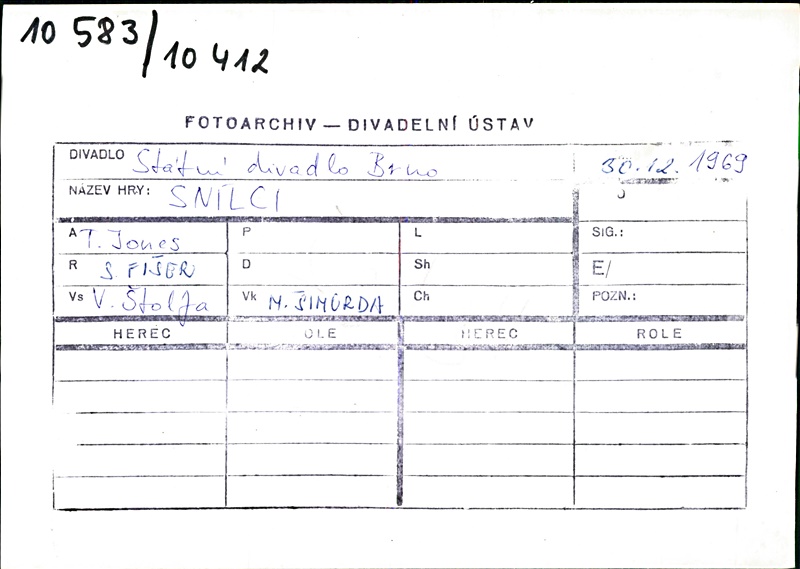 10 583/10 412
FOTOARCHIV — DIVADELNÍ ÚSTAV
DIVADLO Státní divadlo Brno 30.12.1969
NÁZEV HRY: SNÍLCI
A T. Jones P L SIG.:
R S. FIŠER D Sh E/
Vs V. Štolfa Vk M. ŠIMURDA Ch POZN.:
HEREC OLE HEREC ROLE